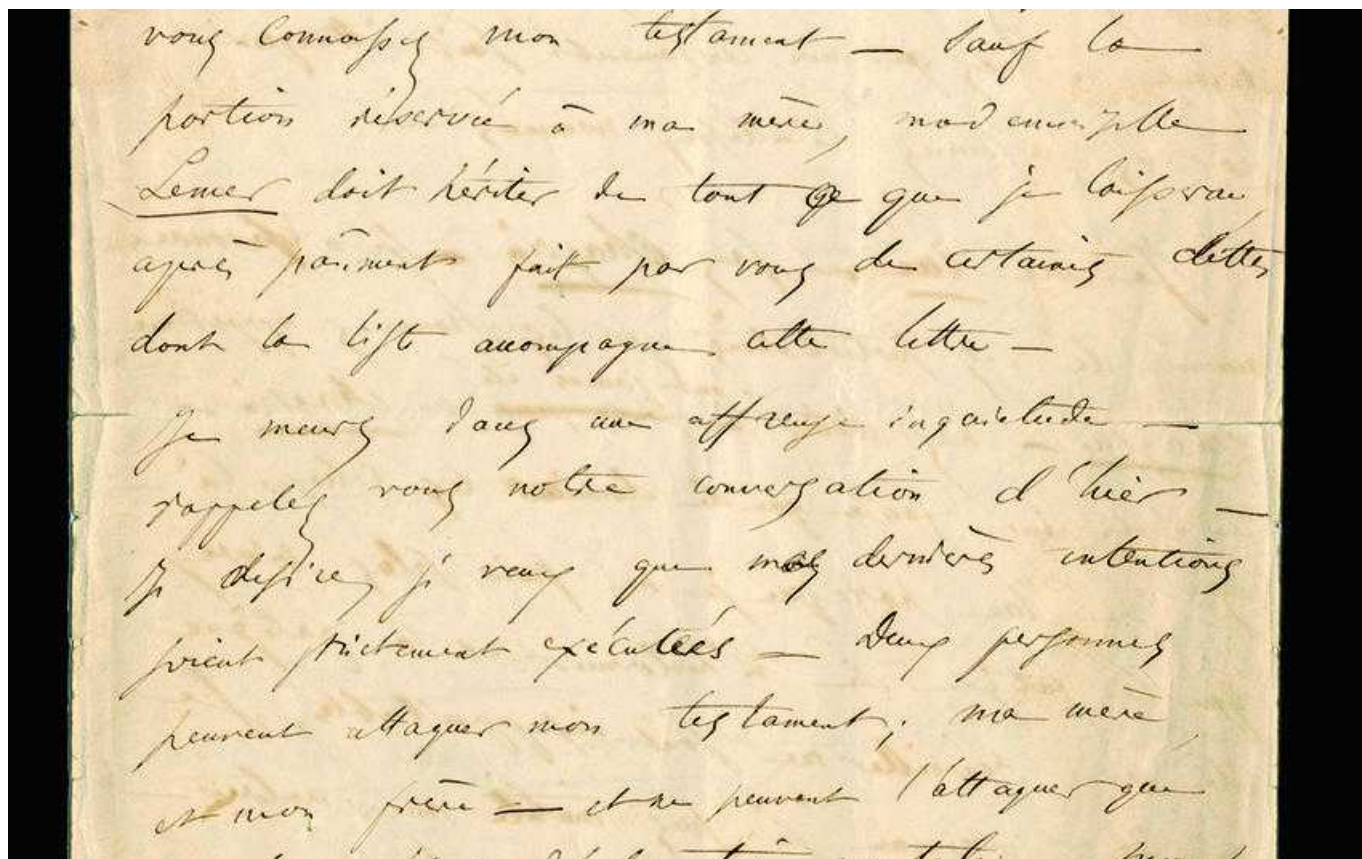 vous connaissez mon testament — Sauf la
portion réservée à ma mère, mademoiselle
Lemer doit hériter de tout ce que je laisserai,
après paîment fait par vous de certaines dettes
dont la liste accompagne cette lettre —
Je meurs dans une affreuse inquiétude —
rappelez vous notre conversation d'hier —
Je désire, je veux que mes dernières intentions
soient strictement exécutées — Deux personnes
peuvent attaquer mon testament; ma mère,
et mon frère — et ne peuvent l'attaquer que